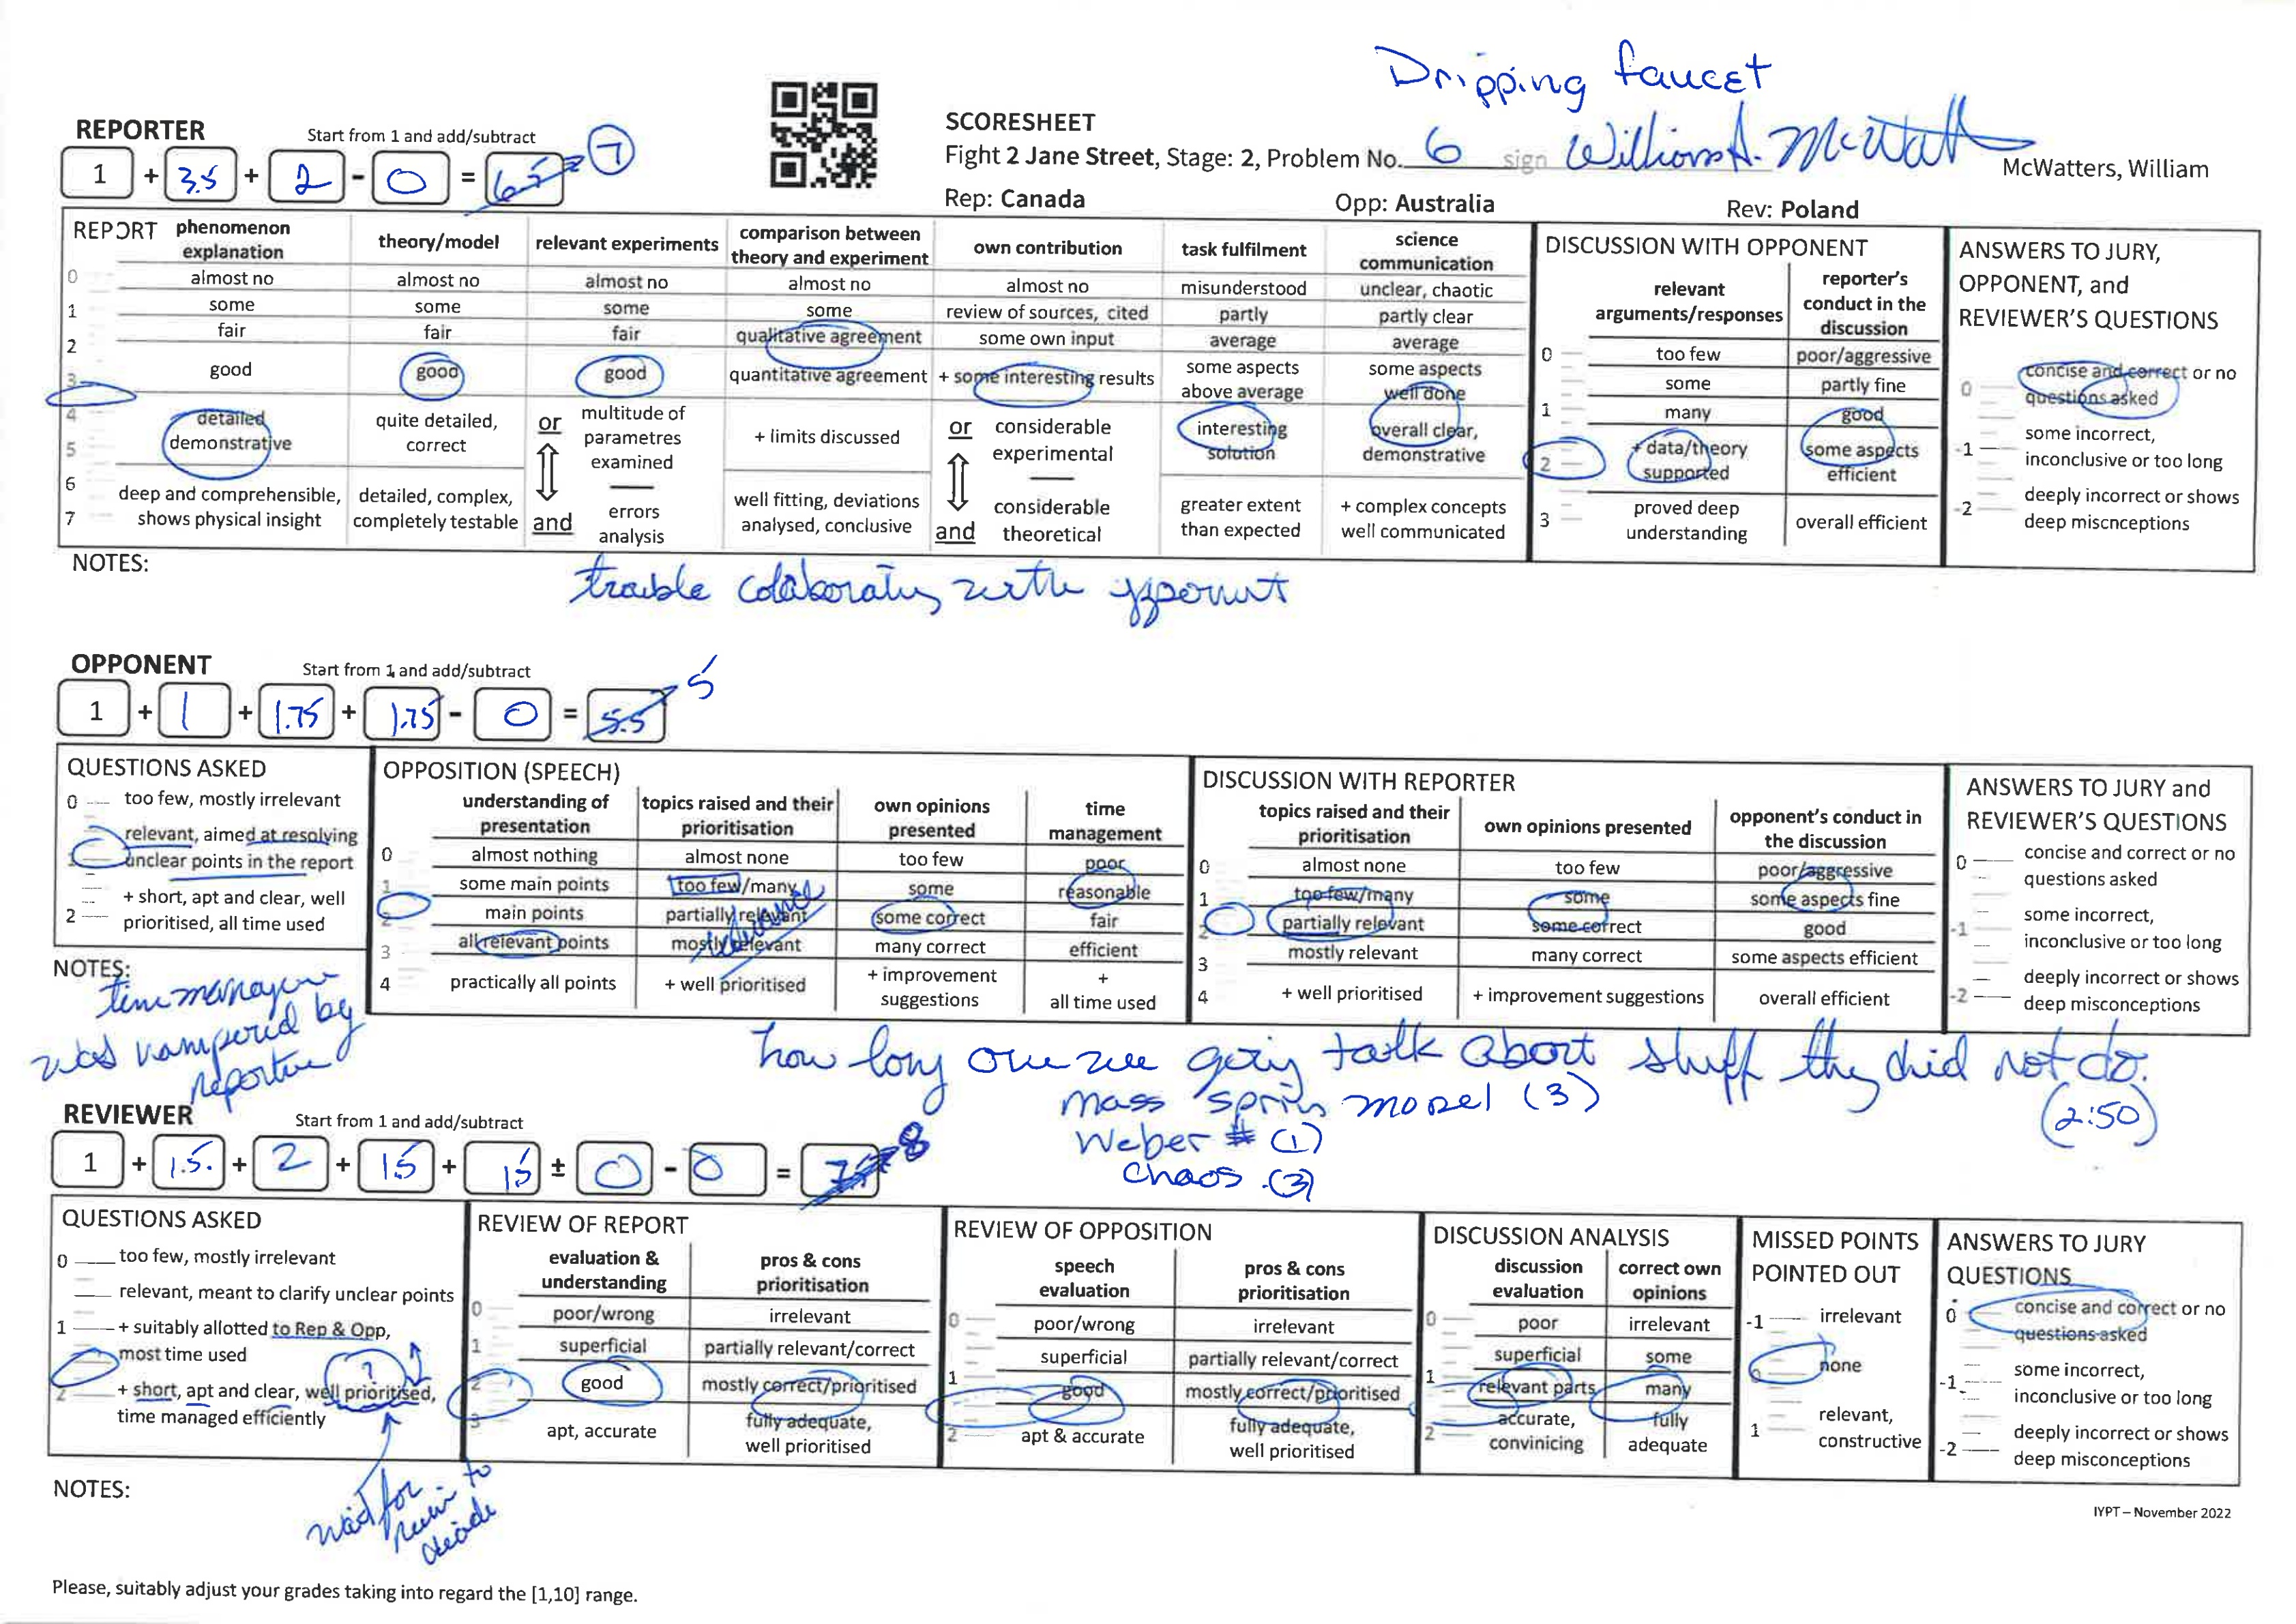 Dripping faucet
REPORTER Start from 1 and add/subtract
1 + 3.5 + 2 - 0 = 6.5 7
SCORESHEET
Fight 2 Jane Street, Stage: 2, Problem No. 6 sign William A. McWatt
McWatters, William
Rep: Canada Opp: Australia Rev: Poland
REPORT phenomenon explanation theory/model relevant experiments comparison between theory and experiment own contribution task fulfilment science communication
0 almost no almost no almost no almost no almost no misunderstood unclear, chaotic
1 some some some some review of sources, cited partly partly clear
2 fair fair fair qualitative agreement some own input average average
3 good good good quantitative agreement + some interesting results some aspects above average some aspects well done
4 5 detailed demonstrative quite detailed, correct or multitude of parametres examined + limits discussed or considerable experimental interesting solution overall clear, demonstrative
6 7 deep and comprehensible, shows physical insight detailed, complex, completely testable and errors analysis well fitting, deviations analysed, conclusive and considerable theoretical greater extent than expected + complex concepts well communicated
DISCUSSION WITH OPPONENT
relevant arguments/responses reporter's conduct in the discussion
0 too few poor/aggressive
some partly fine
1 many good
2 + data/theory supported some aspects efficient
3 proved deep understanding overall efficient
ANSWERS TO JURY, OPPONENT, and REVIEWER'S QUESTIONS
0 concise and correct or no questions asked
-1 some incorrect, inconclusive or too long
-2 deeply incorrect or shows deep miscnceptions
NOTES:
trouble colaborating with opponent
OPPONENT Start from 1 and add/subtract
1 + 1 + 1.75 + 1.75 - 0 = 5.5 5
QUESTIONS ASKED
0 too few, mostly irrelevant
1 relevant, aimed at resolving unclear points in the report
2 + short, apt and clear, well prioritised, all time used
OPPOSITION (SPEECH)
understanding of presentation topics raised and their prioritisation own opinions presented time management
0 almost nothing almost none too few poor
1 some main points too few/many some reasonable
2 main points partially relevant some correct fair
3 all relevant points mostly relevant many correct efficient
4 practically all points + well prioritised + improvement suggestions + all time used
DISCUSSION WITH REPORTER
topics raised and their prioritisation own opinions presented opponent's conduct in the discussion
0 almost none too few poor/aggressive
1 too few/many some some aspects fine
2 partially relevant some correct good
3 mostly relevant many correct some aspects efficient
4 + well prioritised + improvement suggestions overall efficient
ANSWERS TO JURY and REVIEWER'S QUESTIONS
0 concise and correct or no questions asked
-1 some incorrect, inconclusive or too long
-2 deeply incorrect or shows deep misconceptions
NOTES:
was by
how long are we going talk about stuff they did not do.
(2:50)
mass spring model (3)
Weber # (1)
Chaos (3)
REVIEWER Start from 1 and add/subtract
1 + 1.5 + 2 + 1.5 + 1.5 ± 0 - 0 = 8
QUESTIONS ASKED
0 too few, mostly irrelevant
relevant, meant to clarify unclear points
1 + suitably allotted to Rep & Opp, most time used
2 + short, apt and clear, well prioritised, time managed efficiently
?
REVIEW OF REPORT
evaluation & understanding pros & cons prioritisation
0 poor/wrong irrelevant
1 superficial partially relevant/correct
2 good mostly correct/prioritised
3 apt, accurate fully adequate, well prioritised
REVIEW OF OPPOSITION
speech evaluation pros & cons prioritisation
0 poor/wrong irrelevant
superficial partially relevant/correct
1 good mostly correct/prioritised
2 apt & accurate fully adequate, well prioritised
DISCUSSION ANALYSIS
discussion evaluation correct own opinions
0 poor irrelevant
superficial some
1 relevant parts many
2 accurate, convinicing fully adequate
MISSED POINTS POINTED OUT
-1 irrelevant
0 none
1 relevant, constructive
ANSWERS TO JURY QUESTIONS
0 concise and correct or no questions asked
-1 some incorrect, inconclusive or too long
-2 deeply incorrect or shows deep misconceptions
NOTES:
IYPT – November 2022
Please, suitably adjust your grades taking into regard the [1,10] range.